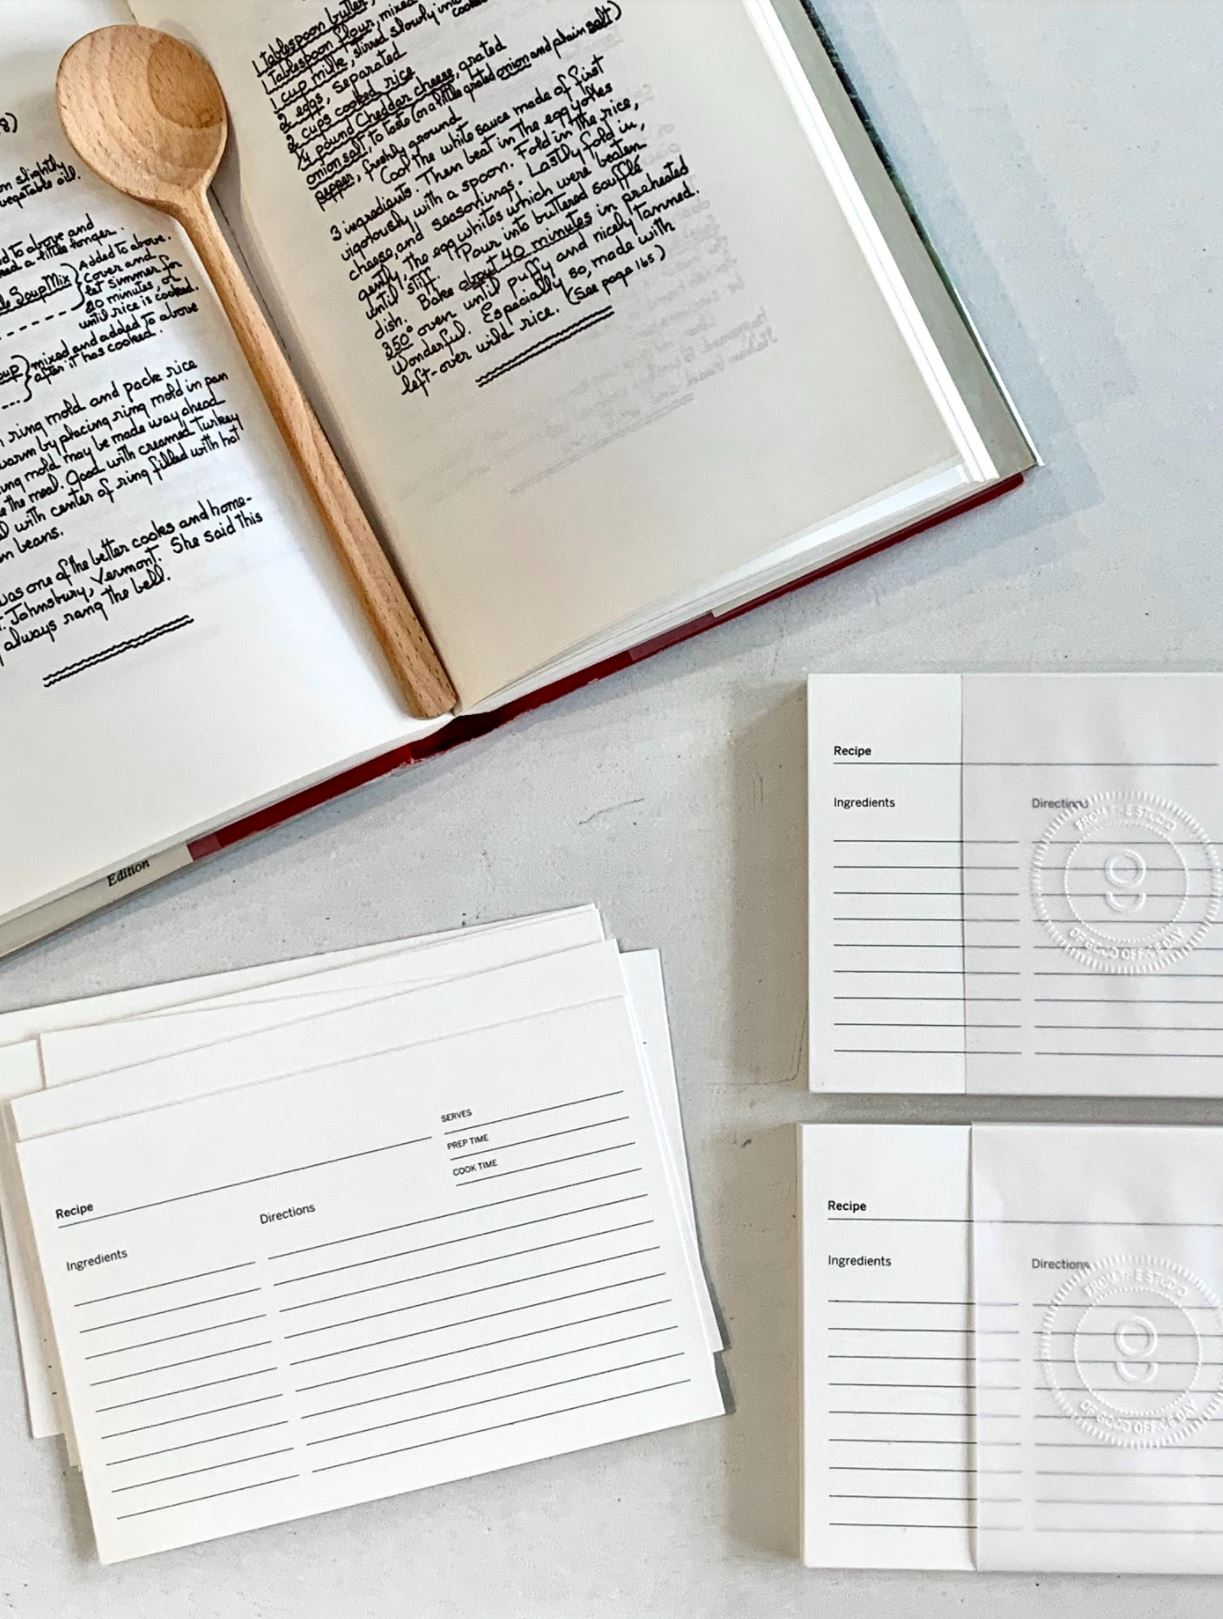 8)
n slightly
vegetable oil.
d to above and
ed a little longer.
Soup Mix } Added to above.
Cover and
let simmer for
20 minutes, or
until rice is cooked.
oup } mixed and added to above
after it has cooked.
ring mold and pack rice
warm by placing ring mold in pan
ring mold may be made way ahead
e the meal. Good with creamed turkey
d with center of ring filled with hot
n beans.
was one of the better cooks and home-
t. Johnsbury, Vermont. She said this
always rang the bell.
1 Tablespoon butter,
1 Tablespoon flour, mixed
1 cup milk, stirred slowly into
2 eggs, separated
2 cups cooked rice
1/4 pound Cheddar cheese, grated
onion salt, to taste (or a little grated onion and plain salt)
pepper, freshly ground
Cool the white sauce made of first
3 ingredients. Then beat in the egg yolks
vigorously with a spoon. Fold in the rice,
cheese, and seasonings. Lastly fold in,
gently, the egg whites which were beaten
until stiff. Pour into buttered soufflé
dish. Bake about 40 minutes in preheated
350° oven until puffy and nicely tanned.
Wonderful. Especially so, made with
left-over wild rice. (See page 165)
Edition
Recipe
Ingredients
Directions
FROM THE STUDIO
g
OF GOOD OFFICE DAY
SERVES
PREP TIME
COOK TIME
Recipe
Directions
Ingredients
Recipe
Ingredients
Directions
FROM THE STUDIO
g
OF GOOD OFFICE DAY